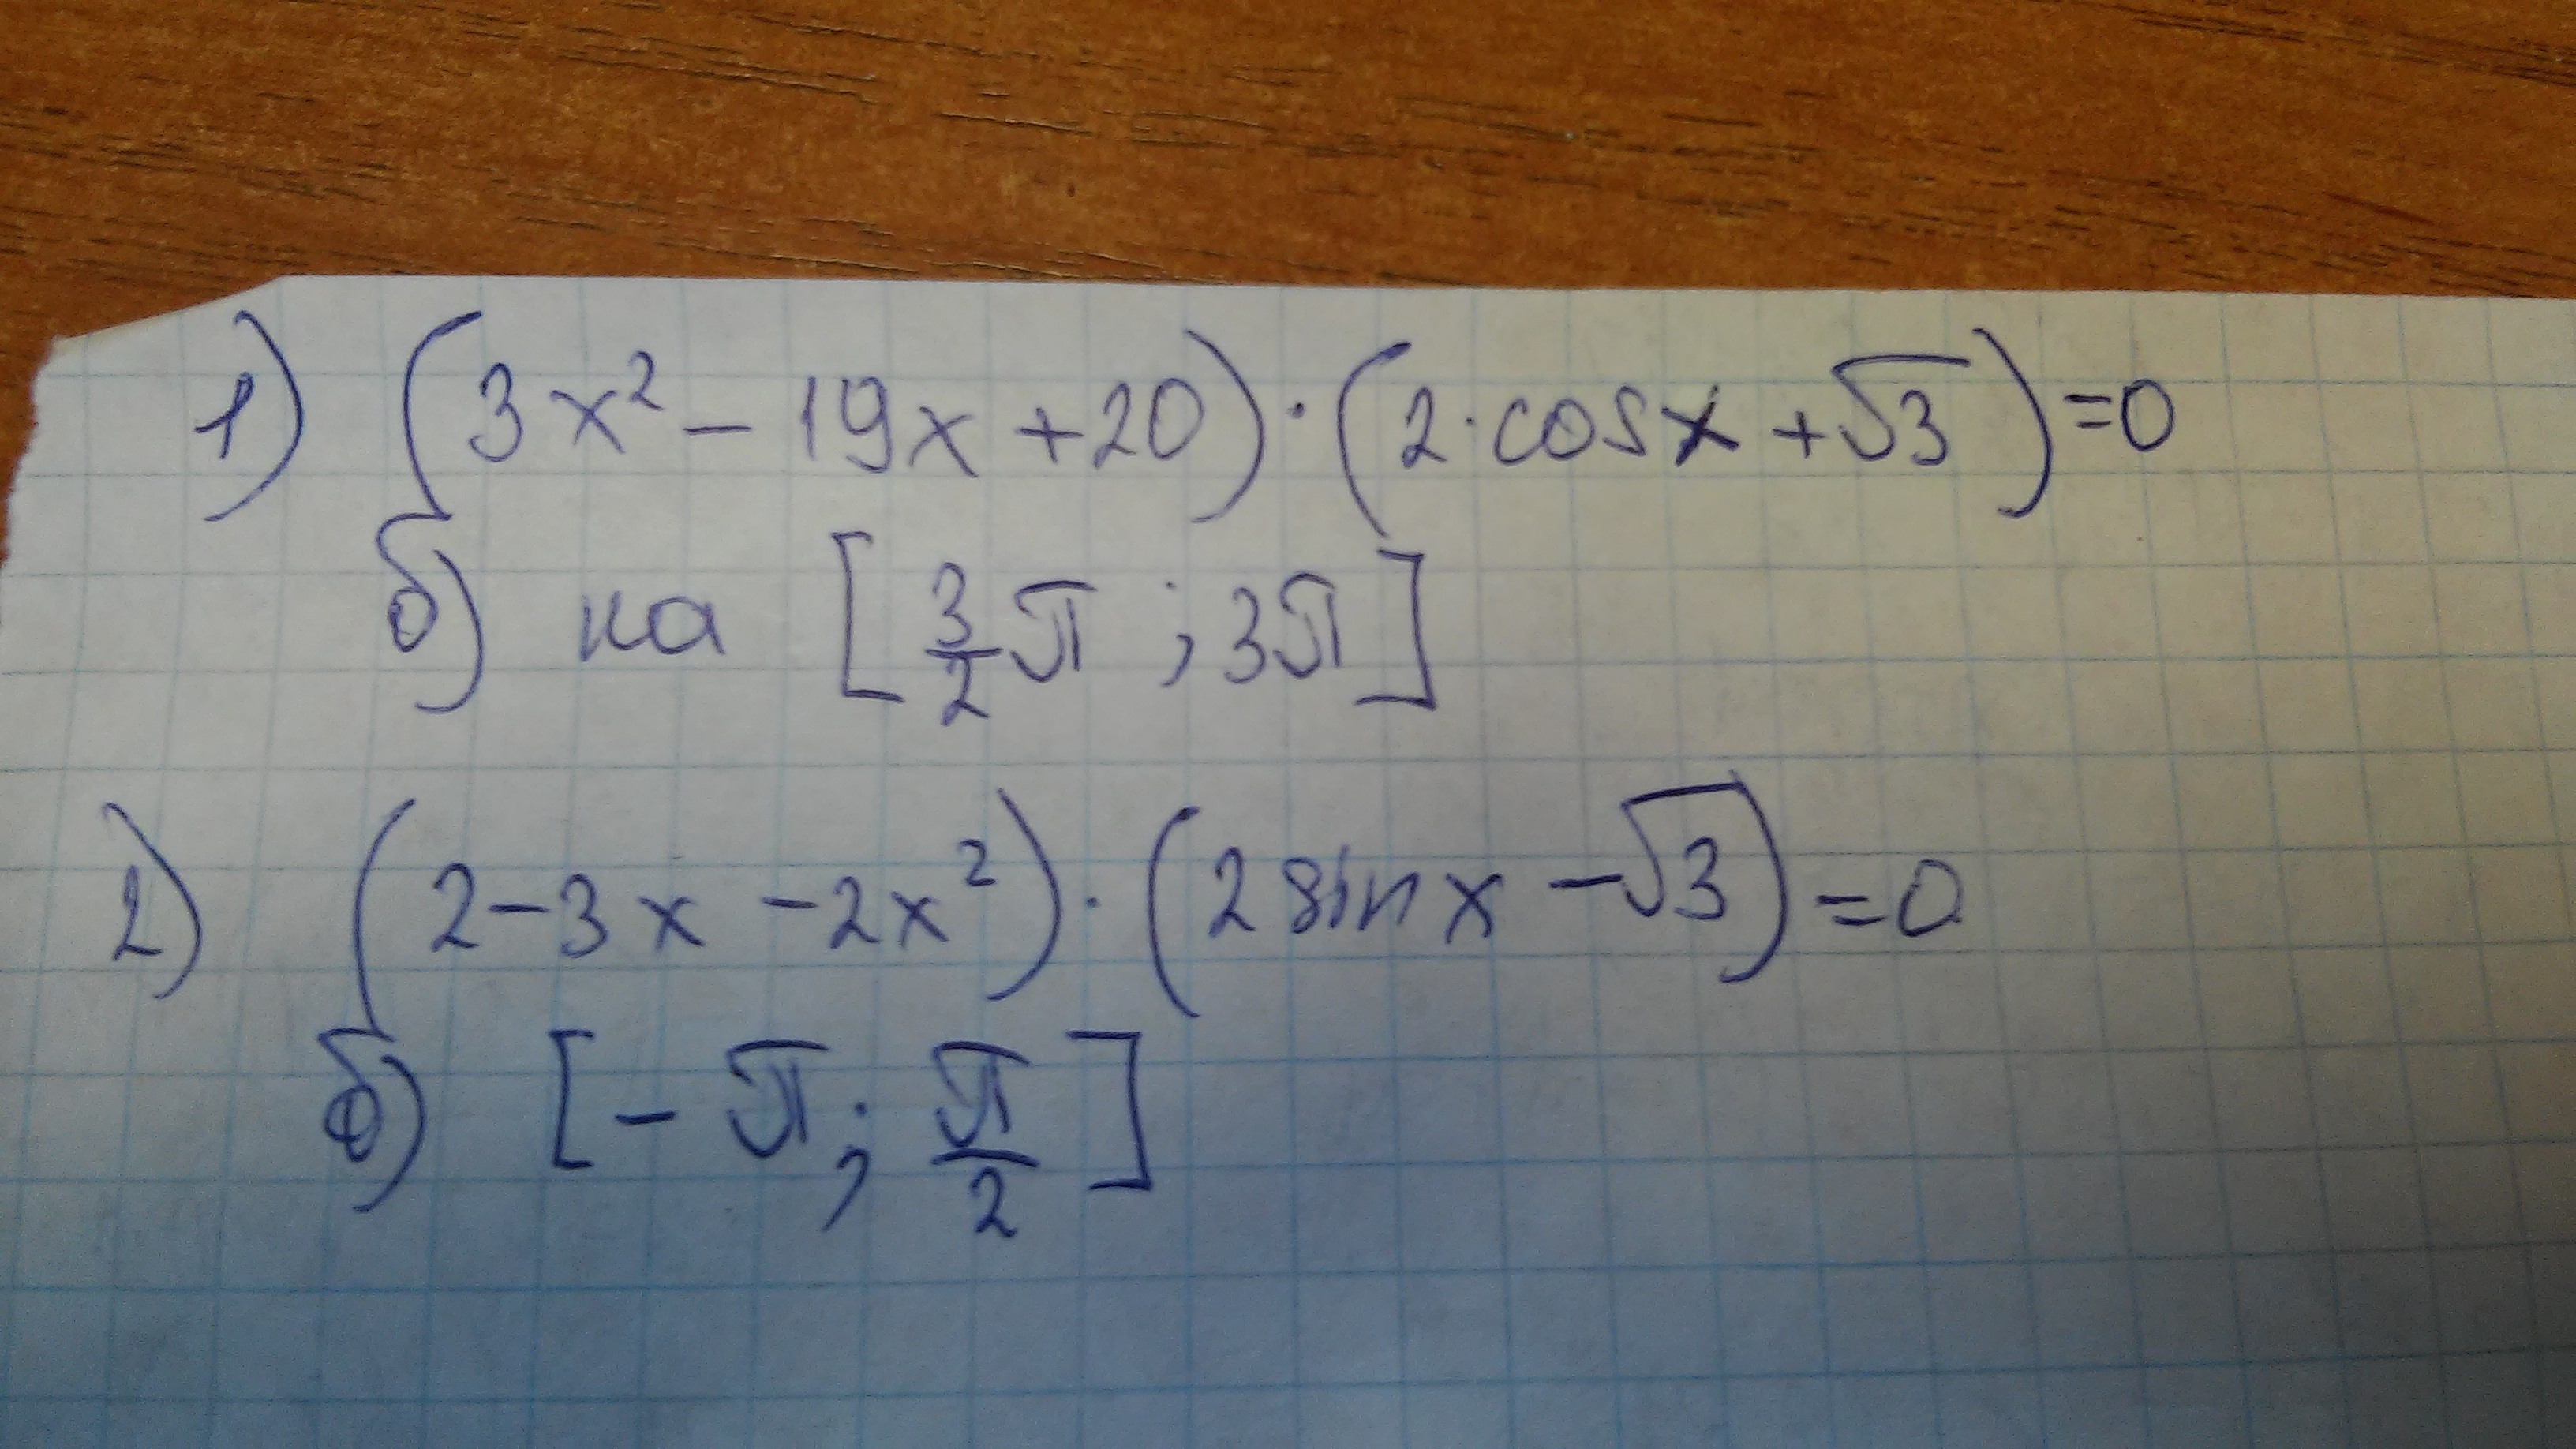 1) (3x² - 19x + 20) · (2·cosx + √3) = 0
б) на [3/2 π ; 3π]
2) (2 - 3x - 2x²) · (2 sin x - √3) = 0
б) [- π ; π/2]